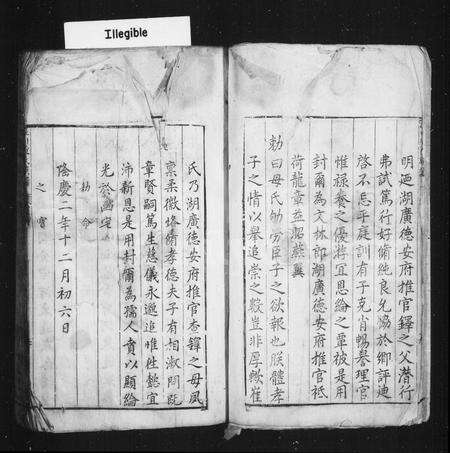 Illegible
明廼湖廣德安府推官鐸之父潛行
弗試篤行好脩純良允協於鄉評迪
啓不忘乎庭訓有子克肖暢譽理官
惟祿養之優將宜恩綸之覃被是用
封爾為文林郎湖廣德安府推官祗
荷龍章益貽燕翼
勅曰母氏劬勞臣子之欲報也朕體孝
子之情以舉追崇之數豈非厚歟崔
氏乃湖廣德安府推官杏鐸之母夙
稟柔徽恪脩孝德夫子有相淑問既
章賢嗣篤生慈儀永邈追惟懿宜
沛新恩是用封爾為孺人賁以顯綸
光於幽宅
勅命
隆慶二年十二月初六日
之寶